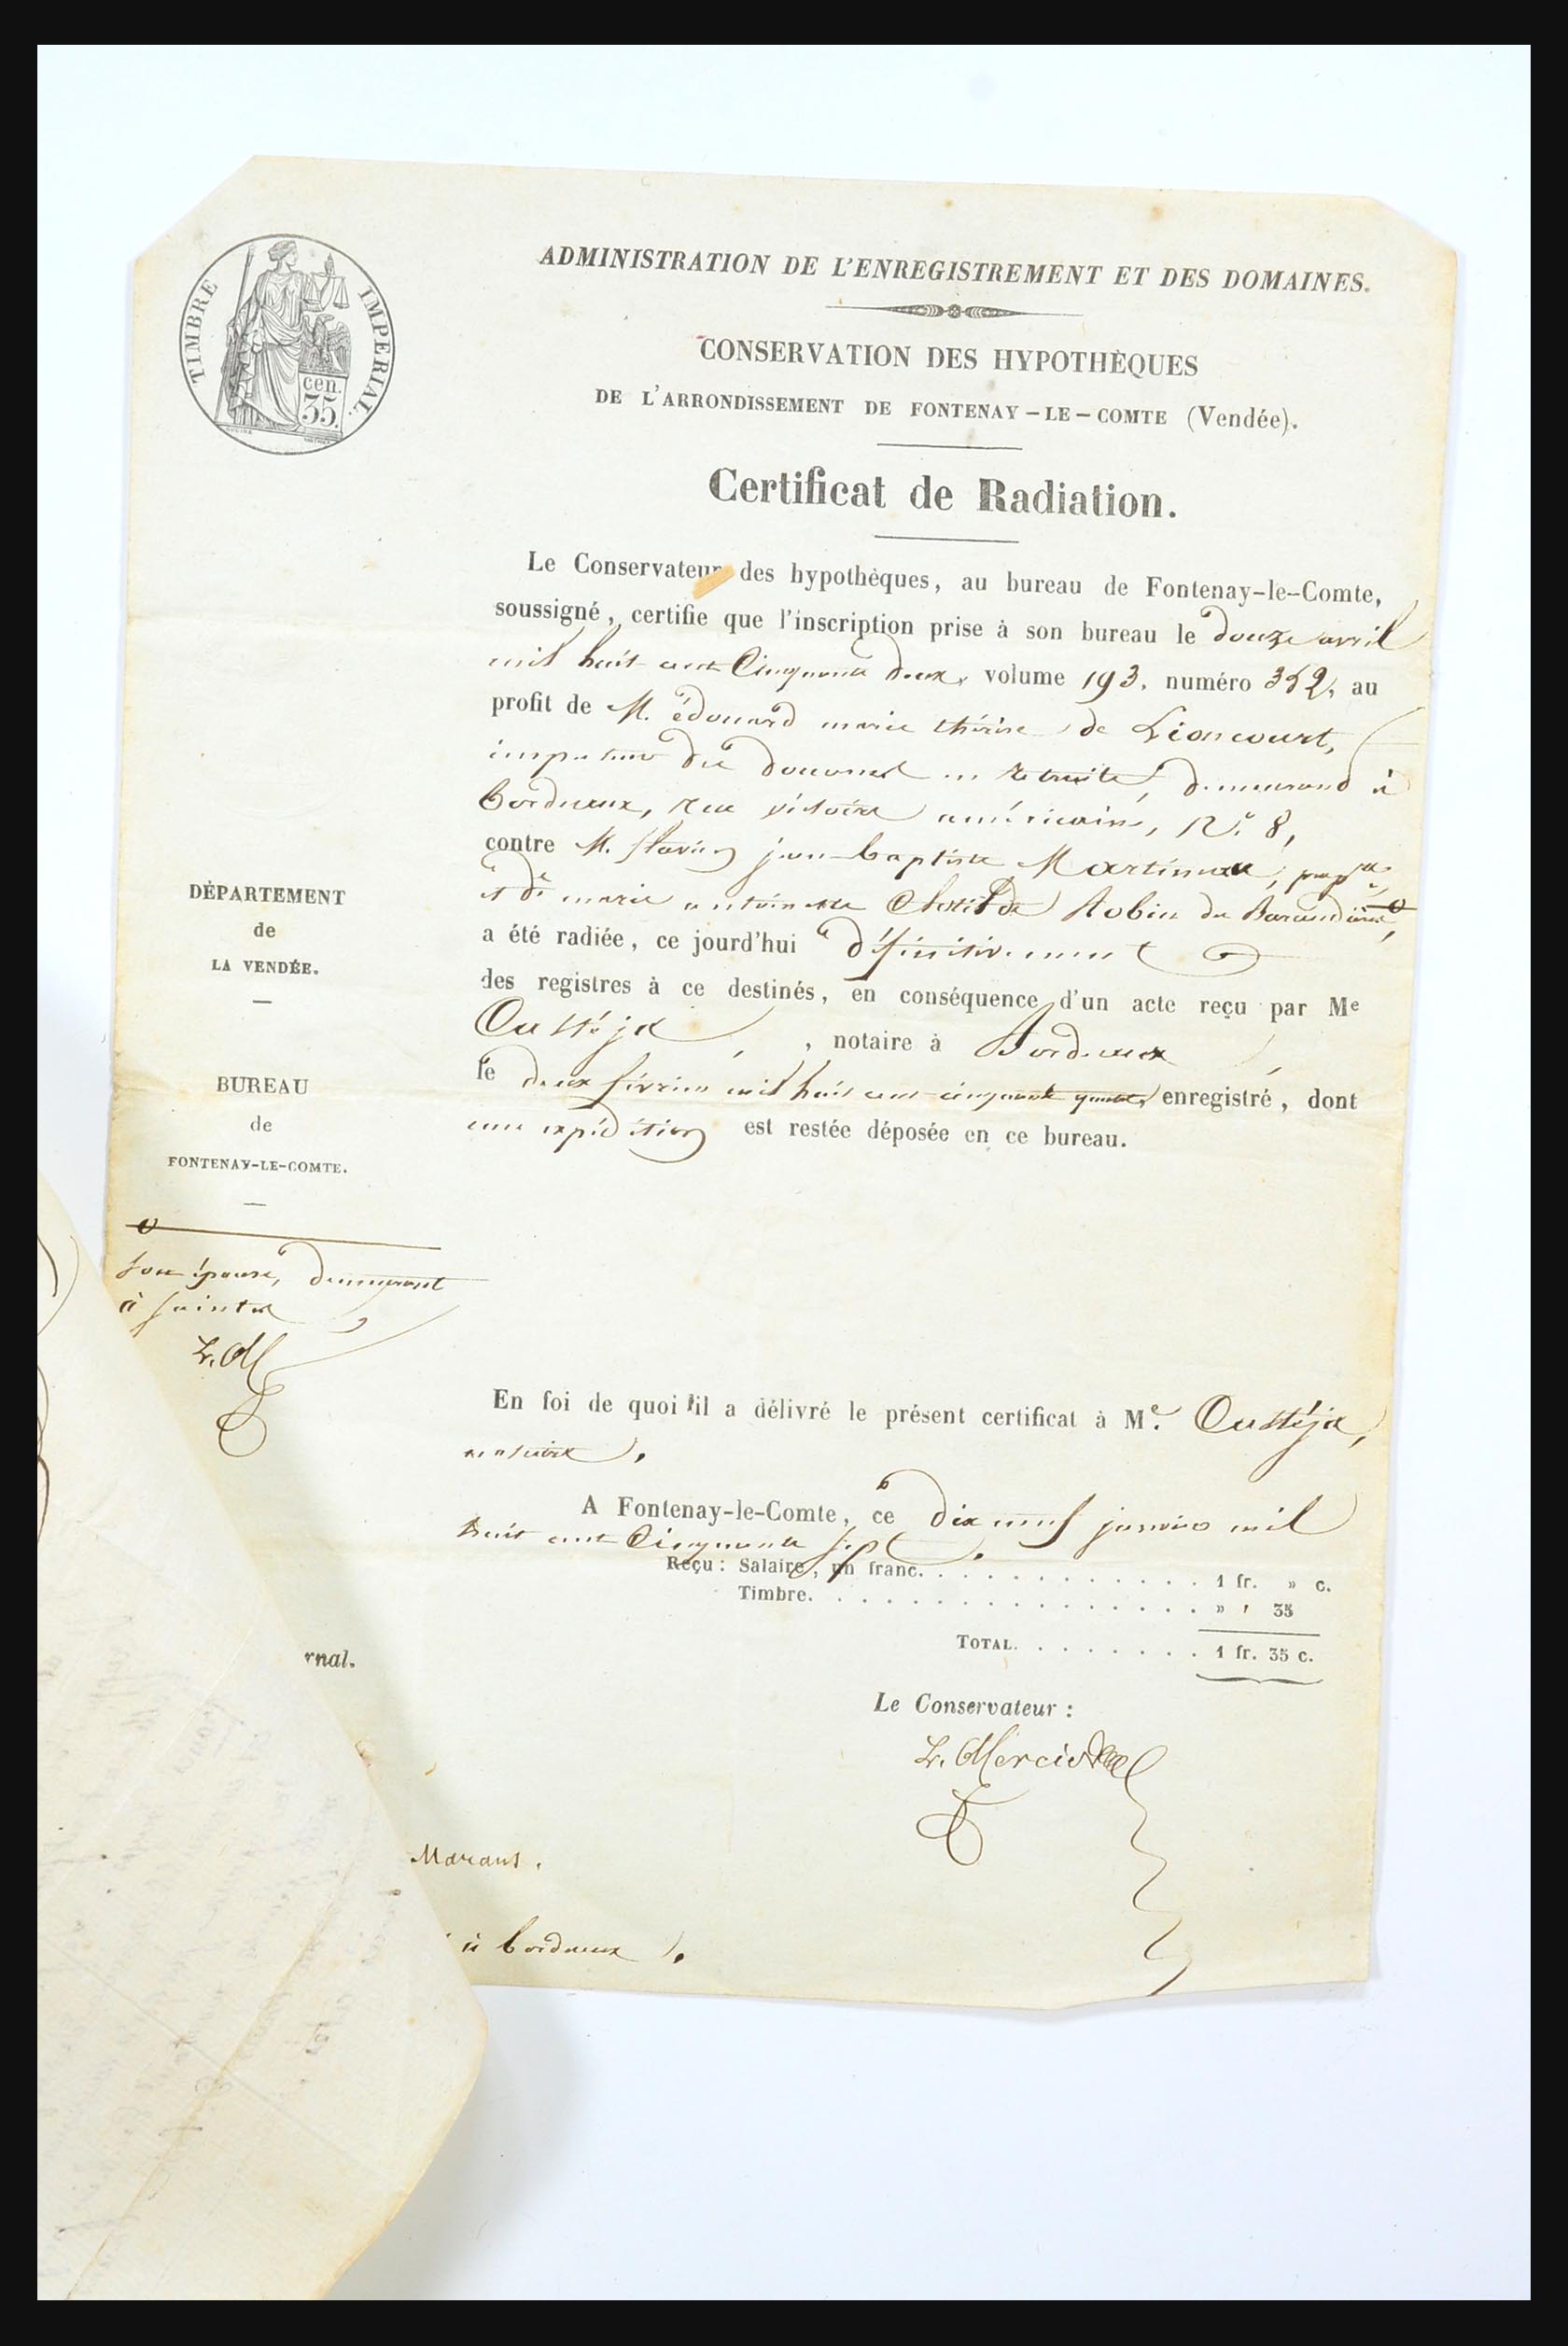 TIMBRE IMPERIAL.
cen.
35.
ADMINISTRATION DE L'ENREGISTREMENT ET DES DOMAINES.
CONSERVATION DES HYPOTHÈQUES
DE L'ARRONDISSEMENT DE FONTENAY-LE-COMTE (Vendée).
Certificat de Radiation.
Le Conservateur des hypothèques, au bureau de Fontenay-le-Comte,
soussigné, certifie que l'inscription prise à son bureau le douze avril
mil huit cent Cinquante deux, volume 193, numéro 352, au
profit de M. édouard marie thérèse de Lioncourt,
inspecteur des douanes en retraite, demeurand à
Bordeaux, rue victoire américaine, N.º 8,
contre M. flavien jean-baptiste Martineau,
et de marie antoinette Clotilde Robin du
a été radiée, ce jourd'hui définitivement
des registres à ce destinés, en conséquence d'un acte reçu par Me
Oustéja, notaire à Bordeaux
le deux février mil huit cent cinquante enregistré, dont
une expédition est restée déposée en ce bureau.
DÉPARTEMENT
de
LA VENDÉE.
BUREAU
de
FONTENAY-LE-COMTE.
son épouse, demeurant
à saintes
L. M
En foi de quoi il a délivré le présent certificat à Me. Oustéja,
notaire.
A Fontenay-le-Comte, ce dix neuf janvier mil
huit cent Cinquante sept.
Reçu: Salaire, un franc. . . . . . . . . . . . . 1 fr. » c.
Timbre. . . . . . . . . . . . . . . . . » , 35
TOTAL. . . . . . . . 1 fr. 35 c.
rnal.
Le Conservateur :
L. Mercier
Marans.
à bordeaux.